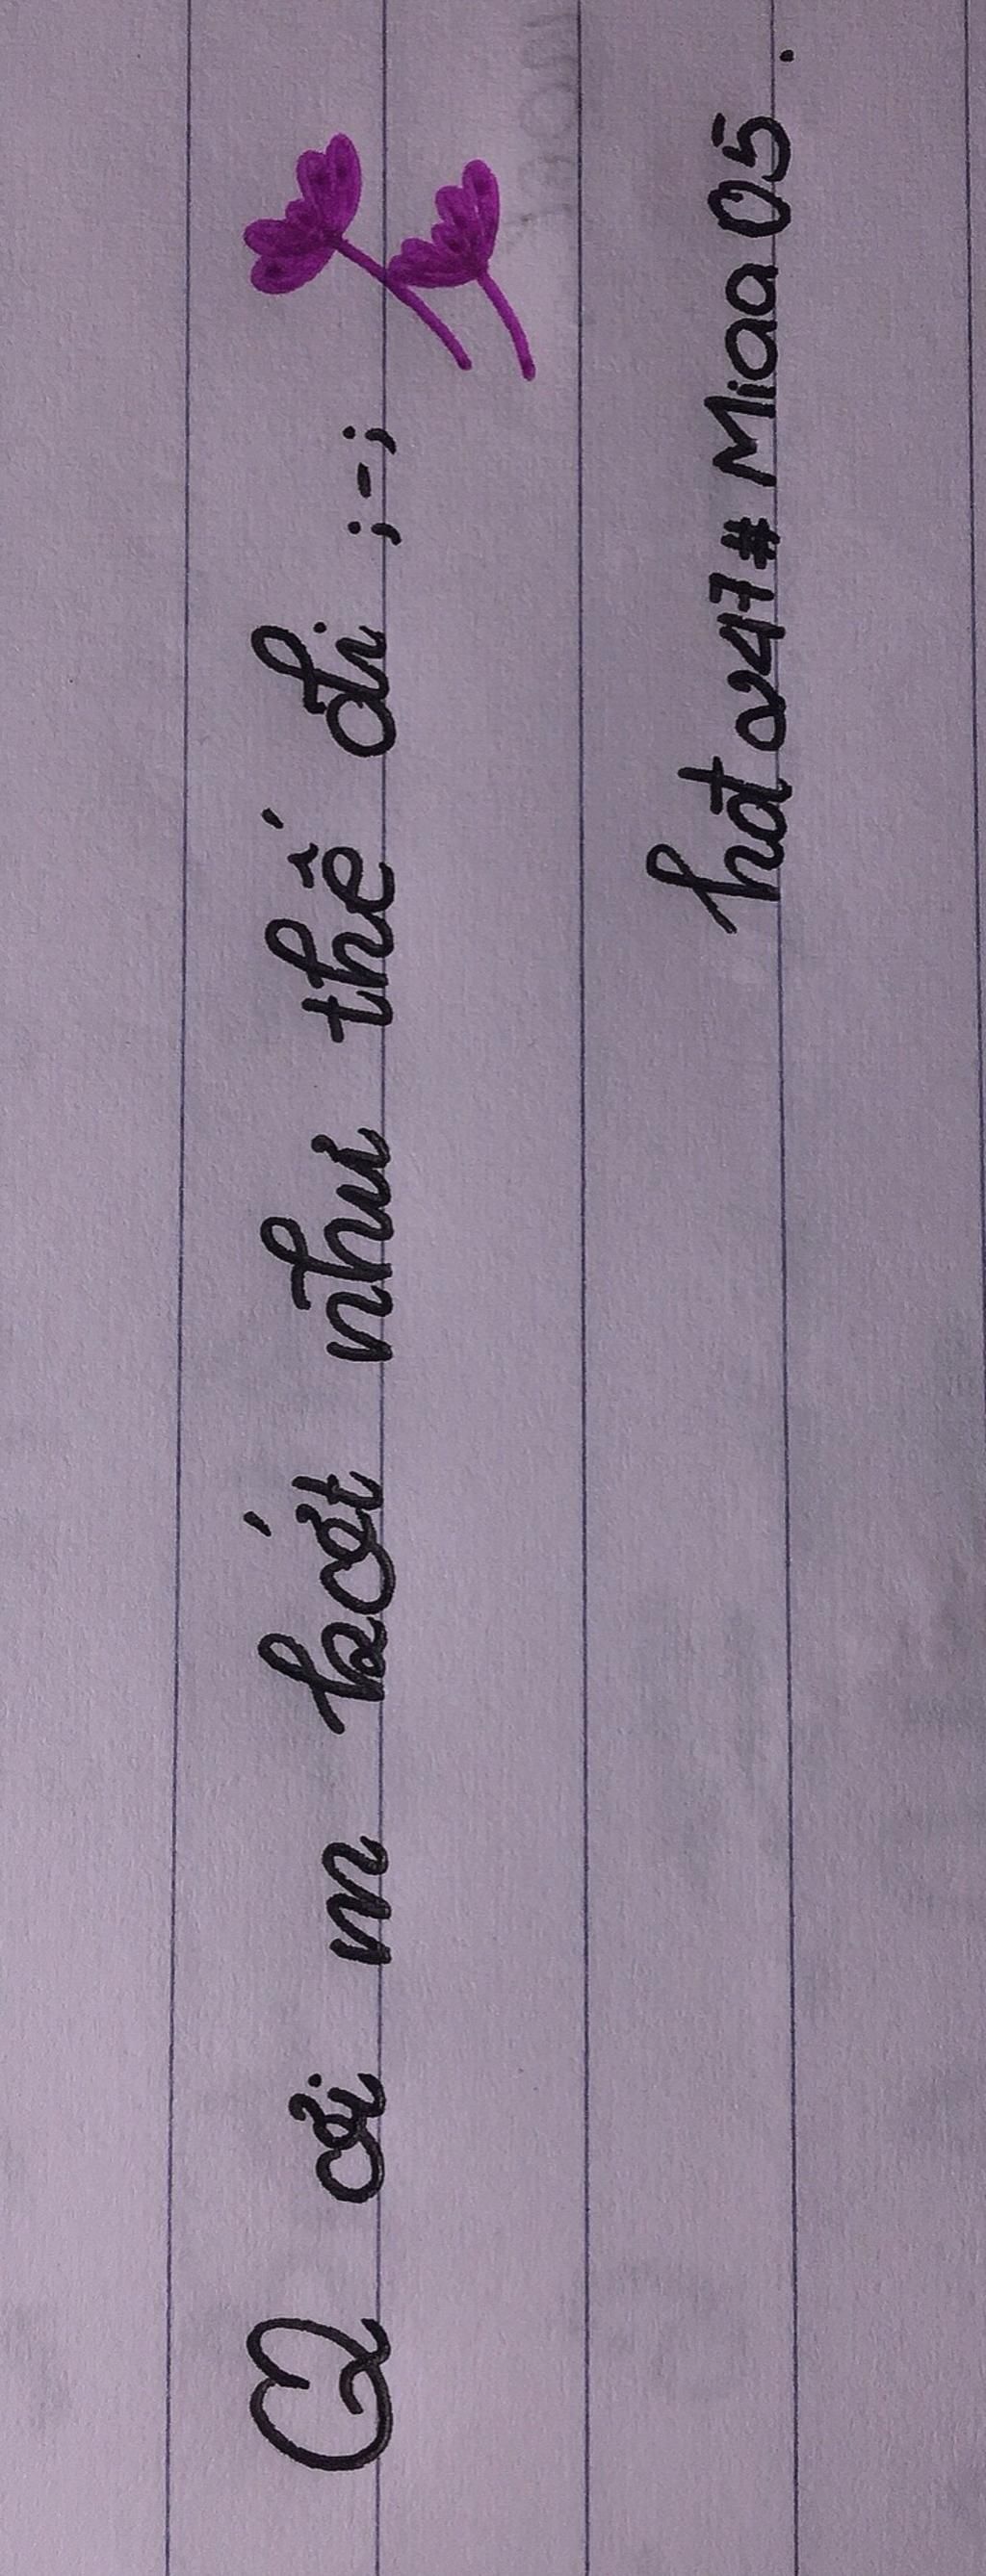 Q ơi m kớt như thế đi ;-;
hat247#Miaa05.